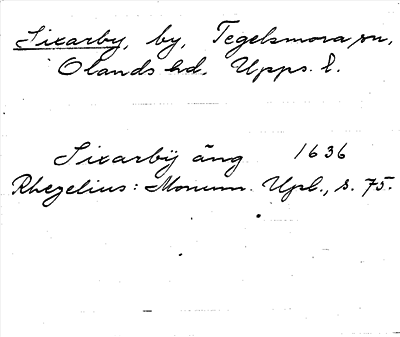 Sixarby, by, Tegelsmora sn,
Olands hd. Upps. l.
Sixarbÿ äng 1636
Rhezelius: Monum. Upl., s. 75.